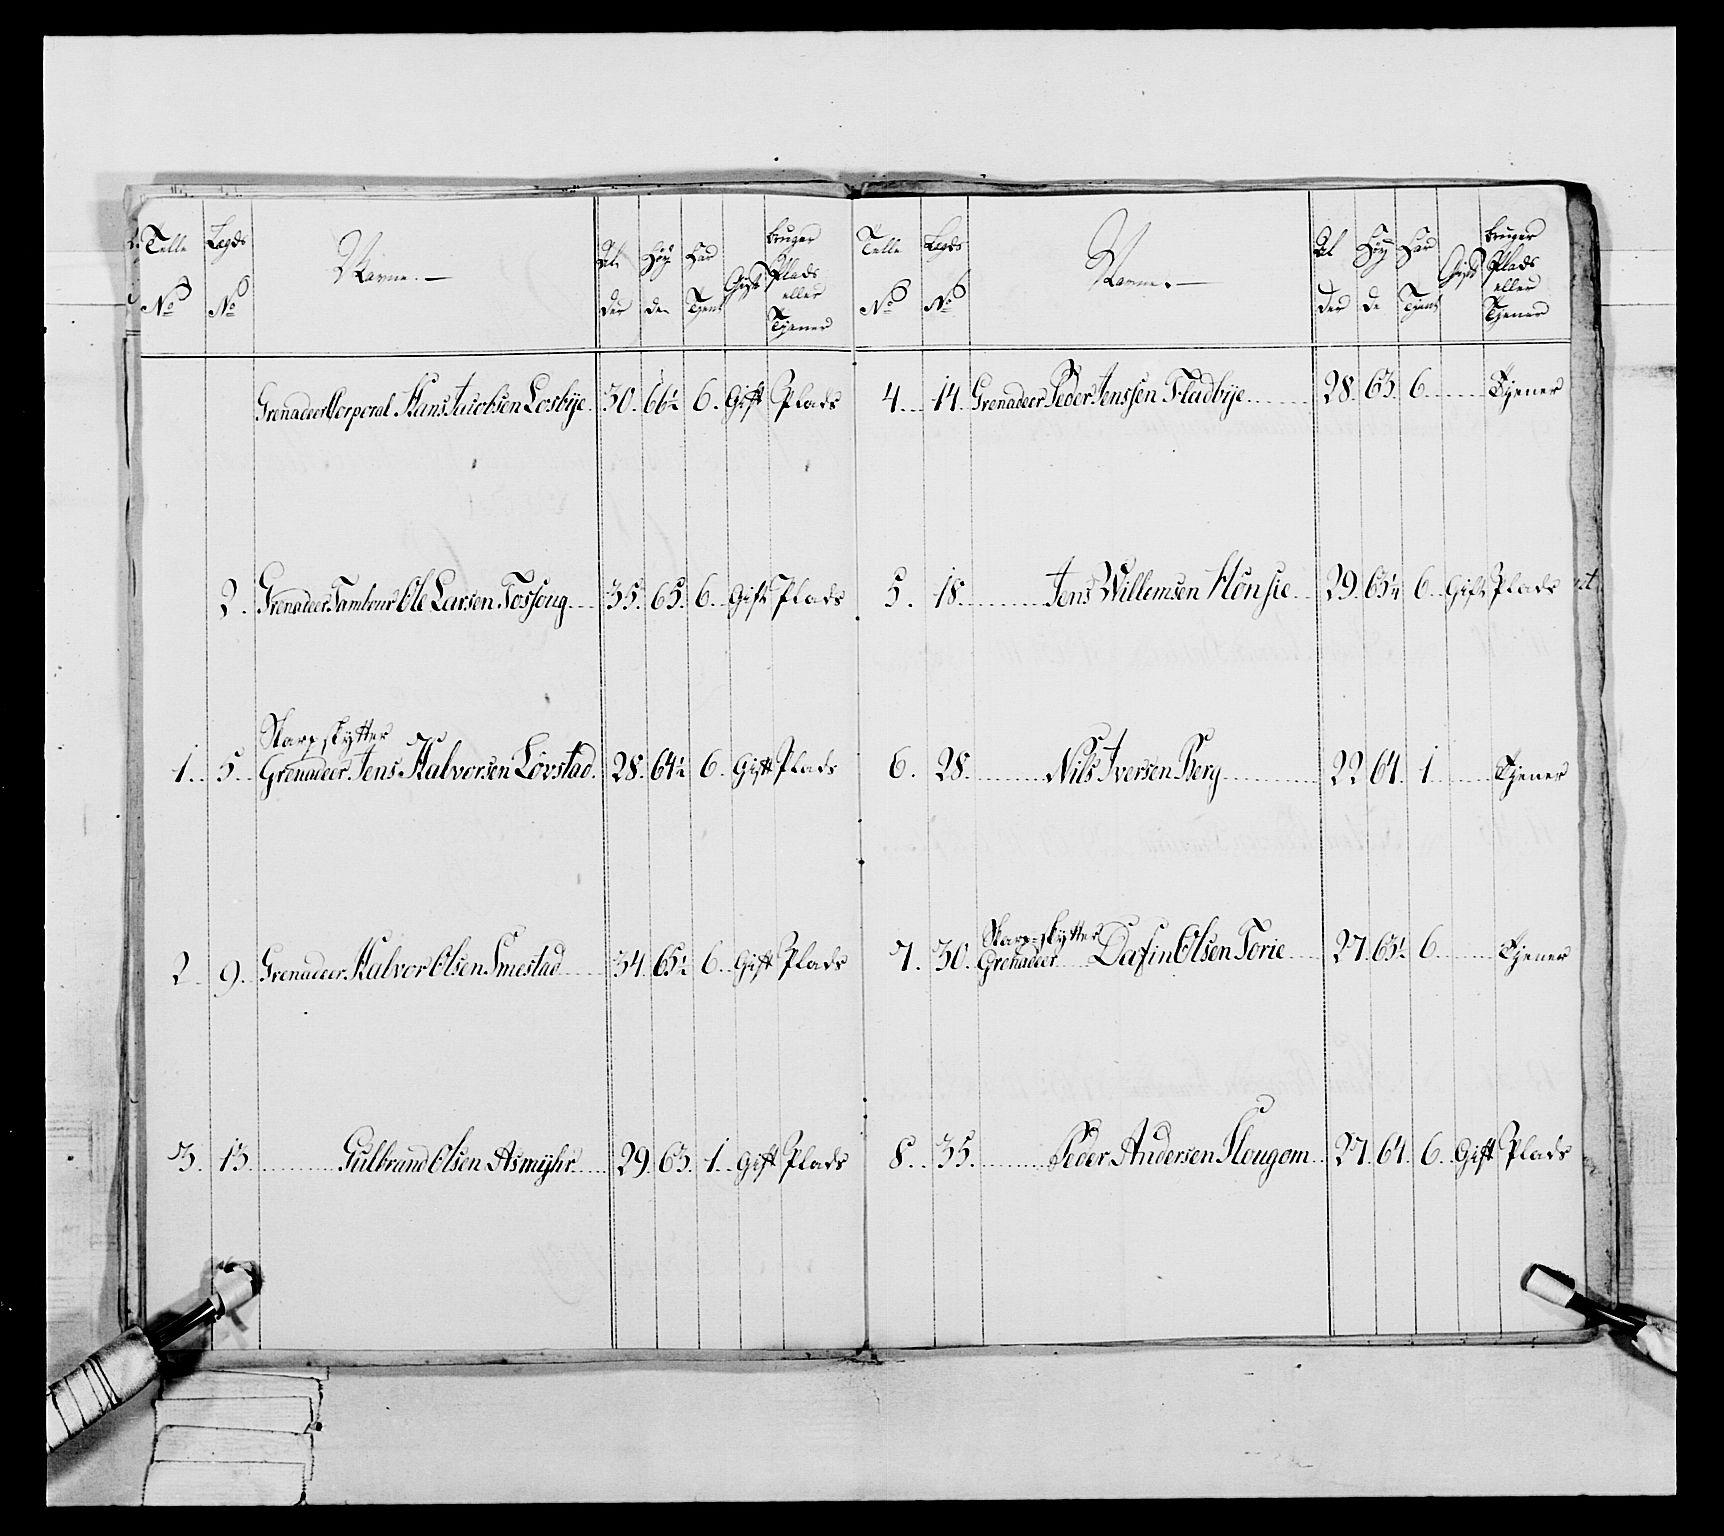 Telle No Lægds No Navne. Alder Høyde Har Tjent Gift bruger Plads eller Tjener
Grenadeer Corporal Hans Jacobsen Losbÿe 30. 66½ 6. Gift Plads
2. Grenadeer Tambour Ole Larsen Fossong 35. 65. 6. Gift Plads
Skarpskytter
1. 5. Grenadeer Jens Halvorsen Lövstad. 28. 64½ 6. Gift Plads
2. 9. Grenadeer Halvor Olsen Smestad 34. 65½ 6. Gift Plads
3. 13. Gulbrand Olsen Asmÿhr 29. 63. 1. Gift Plads
Telle No Lægds No Navne. Alder Høyde Har Tjent Gift bruger Plads eller Tjener
4. 14. Grenadeer Peder Jenssen Fladbÿe 28. 63. 6. Tjener
5. 18. Jens Willemsen Hönsie 29. 63¼ 6. Gift Plads
6. 28. Nils Iversen Berg 22 64. 1 Tjener
Skarpskytter
7. 30. Grenadeer Dafin Olsen Torie 27. 63½ 6. Tjener
8. 35. Peder Andersen Hougom 27. 64. 6. Gift Plads